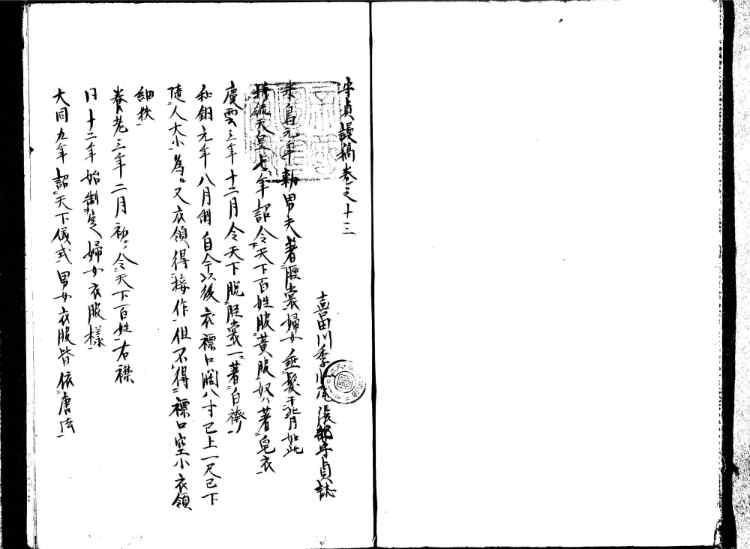 守貞謾稿巻之十三
喜田川季荘尾張部守貞誌
朱鳥元年勅男夫著脛裳婦女垂髪于背如此
持統天皇七年詔令天下百姓服黄服奴著皂衣
慶雲三年十二月令天下脱脛裳一著白袴
和銅元年八月制自今以後衣褾口闊八寸已上一尺已下
随人大小為又衣領得接作但不得褾口窄小衣領
細狭
養老三年二月初令天下百姓右襟
同十二年始制定婦女衣服様
大同九年詔天下儀式男女衣服皆依唐法